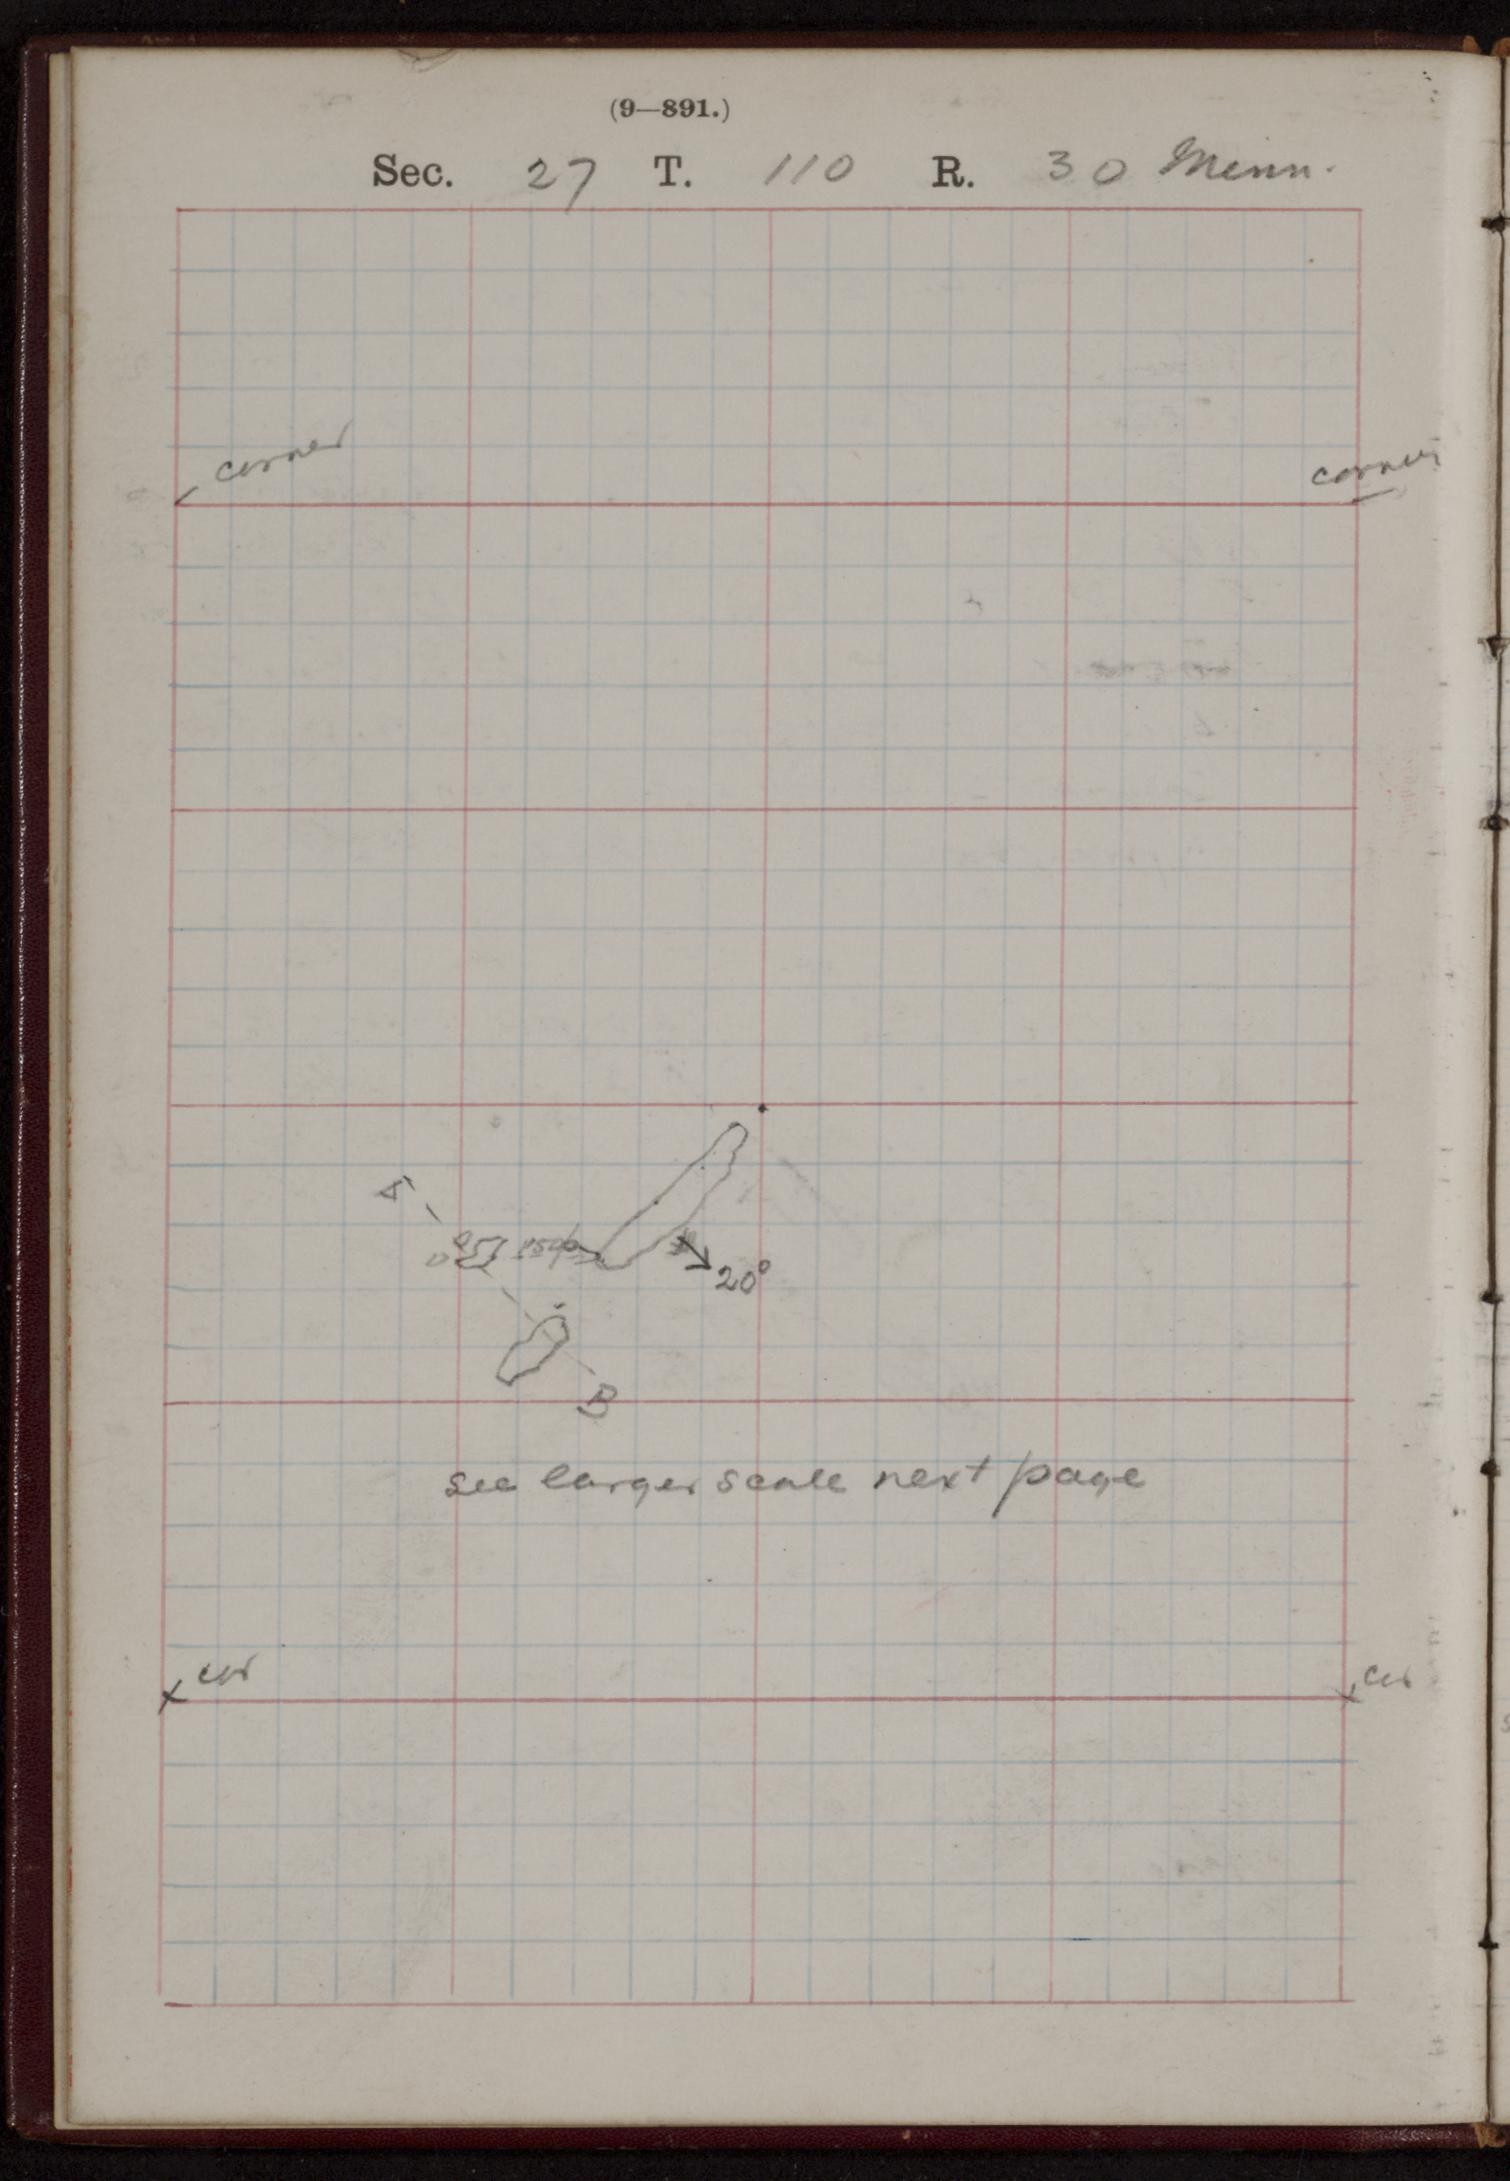 (9—891.)
Sec. 27 T. 110 R. 30 Minn.
corner
corner
A
20°
B
see larger scale next page
cor
cor